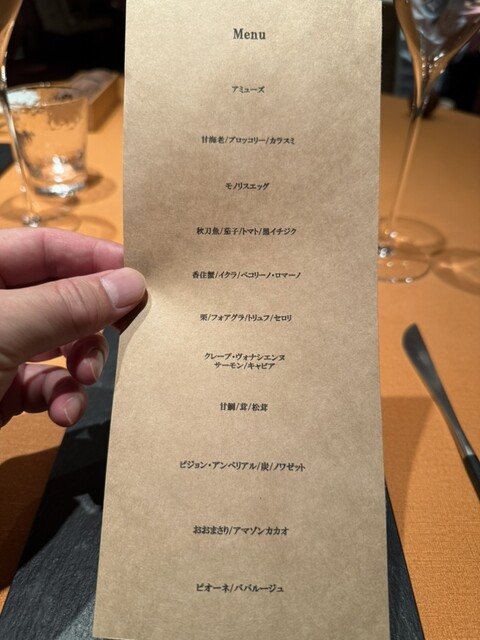 Menu
アミューズ
甘海老/ブロッコリー/カラスミ
モノリスエッグ
秋刀魚/茄子/トマト/黒イチジク
香住蟹/イクラ/ペコリーノ・ロマーノ
栗/フォアグラ/トリュフ/セロリ
クレープ・ヴォナシエンヌ
サーモン/キャビア
甘鯛/茸/松茸
ピジョン・アンペリアル/炭/ノワゼット
おおまさり/アマゾンカカオ
ピオーネ/ババルージュ